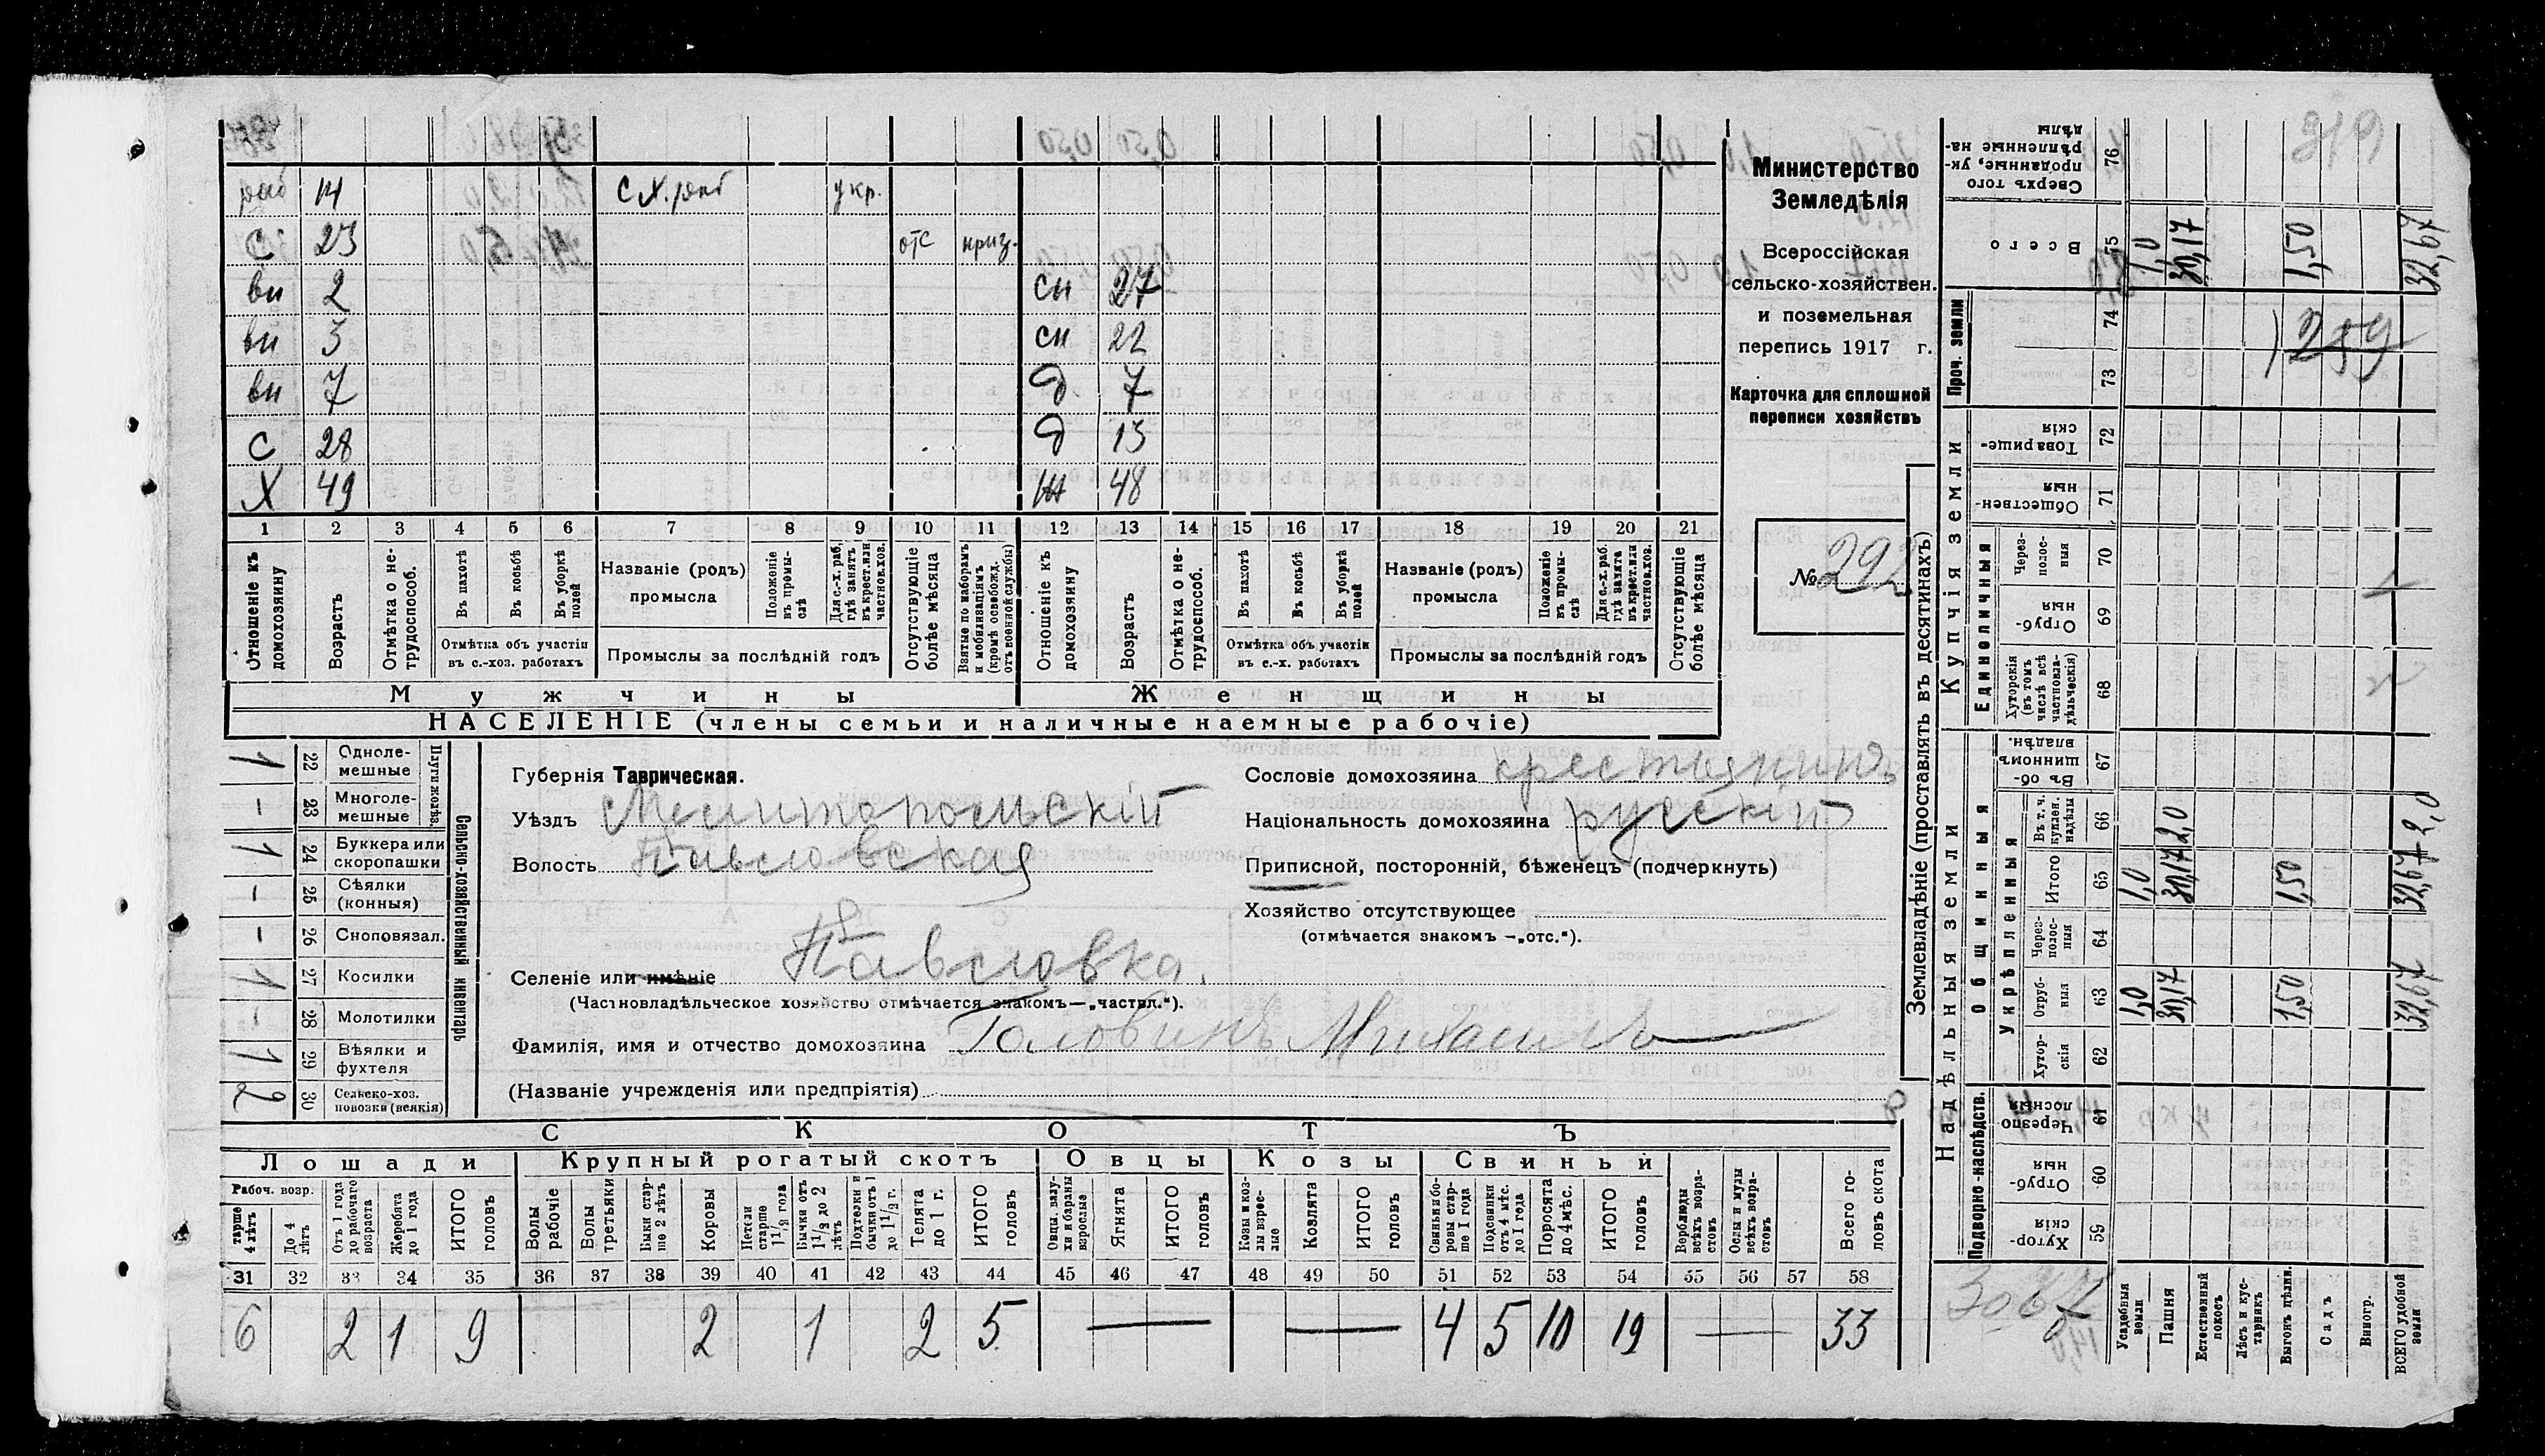 раб 14 с.х. раб укр.
С 23 отс приз.
вн 2 сн 27
вн 3 сн 22
вн 7 д 7
С 28 д 13
Х 49 жн 48
1 2 3 4 5 6 7 8 9 10 11 12 13 14 15 16 17 18 19 20 21
Отношеніе къ домохозяину
Возрастъ
Отмѣтка о нетрудоспособ.
Въ пахотѣ
Въ косьбѣ
Въ уборкѣ полей
Отмѣтка объ участіи въ с.-хоз. работахъ
Названіе (родъ) промысла
Положеніе въ промыслѣ
Для с.-х. раб. гдѣ занятъ въ крест. или частнов. хоз.
Промыслы за послѣдній годъ
Отсутствующіе болѣе мѣсяца
Взятые по наборамъ и мобилизаціямъ (кромѣ освобожд. отъ военной службы)
Отношеніе къ домохозяину
Возрастъ
Отмѣтка о нетрудоспособ.
Въ пахотѣ
Въ косьбѣ
Въ уборкѣ полей
Отмѣтка объ участіи въ с.-х. работахъ
Названіе (родъ) промысла
Положеніе въ промыслѣ
Для с.-х. раб. гдѣ занята въ крест. или частнов. хоз.
Промыслы за послѣдній годъ
Отсутствующіе болѣе мѣсяца
Мужчины Женщины
НАСЕЛЕНІЕ (члены семьи и наличные наемные рабочіе)
Министерство
Земледѣлія
Всероссійская
сельско-хозяйствен.
и поземельная
перепись 1917 г.
Карточка для сплошной
переписи хозяйствъ
№ 292
1 22 Однолемешные
– 23 Многолемешные
Плуги желѣз.
1 24 Буккера или скоропашки
– 25 Сѣялки (конныя)
– 26 Сноповязал.
1 27 Косилки
– 28 Молотилки
1 29 Вѣялки и фухтеля
2 30 Сельско-хоз. повозки (всякія)
Сельско-хозяйственный инвентарь
Губернія Таврическая.
Уѣздъ Мелитопольскій
Волость Павловская
Селеніе или имѣніе Павловка.
(Частновладѣльческое хозяйство отмѣчается знакомъ—„частвл.“).
Фамилія, имя и отчество домохозяина Головинъ Михаилъ
(Названіе учрежденія или предпріятія)
Сословіе домохозяина крестьянинъ
Національность домохозяина русскій
Приписной, посторонній, бѣженецъ (подчеркнуть)
Хозяйство отсутствующее
(отмѣчается знакомъ —„отс.“).
СКОТЪ
Лошади Крупный рогатый скотъ Овцы Козы Свиньи
Рабоч. возр.
тарше 4 лѣтъ
До 4 лѣтъ
Отъ 1 года до рабочаго возраста
Жеребята до 1 года
ИТОГО головъ
Волы рабочіе
Волы третьяки
Быки старше 2 лѣтъ
Коровы
Нетели старше 1 1/2 года
Бычки отъ 1 1/2 до 2 лѣтъ
Подтелки и бычки отъ 1 до 1 1/2 г.
Телята до 1 г.
ИТОГО головъ
Овцы, валухи и бараны взрослые
Ягнята
ИТОГО головъ
Козы и козлы взрослые
Козлята
ИТОГО головъ
Свиньи и боровы старше 1 года
Подсвинки отъ 4 мѣс. до 1 года
Поросята до 4 мѣс.
ИТОГО головъ
Верблюды всѣхъ возрастовъ
Ослы и мулы всѣхъ возрастовъ
Всего головъ скота
31 32 33 34 35 36 37 38 39 40 41 42 43 44 45 46 47 48 49 50 51 52 53 54 55 56 57 58
6 2 1 9 2 1 2 5 — — 4 5 10 19 — 33
Землевладѣніе (проставлять въ десятинахъ)
Надѣльныя земли Купчія земли Проч. земли
Подворно-наслѣдств.
Общинныя
Укрѣпленныя
Единоличныя
Хуторскія 59
Отрубныя 60
Черезполосныя 61
Хуторскія 62
Отрубныя 63 1,0 30,17 1,50 32,67
Черезполосныя 64
Итого 65 1,0 30,17 1,50 32,67
Въ т. ч. куплен. надѣлы 66 2,0 2,0
Въ общинномъ владѣн. 67
Хуторскія (въ томъ числѣ всѣ частновладѣльческія) 68
Отрубныя 69
Черезполосныя 70
Общественныя 71
Товарищескія 72
73
74
Всего 75 1,0 30,17 1,50 32,67
Сверхъ того проданные, укрѣпленные надѣлы 76
Усадебныя земли
Пашня
Естественный покосъ
Лѣсъ и кустарникъ
Выгонъ цѣлин.
Садъ
Виногр.
ВСЕГО удобной земли
259
319